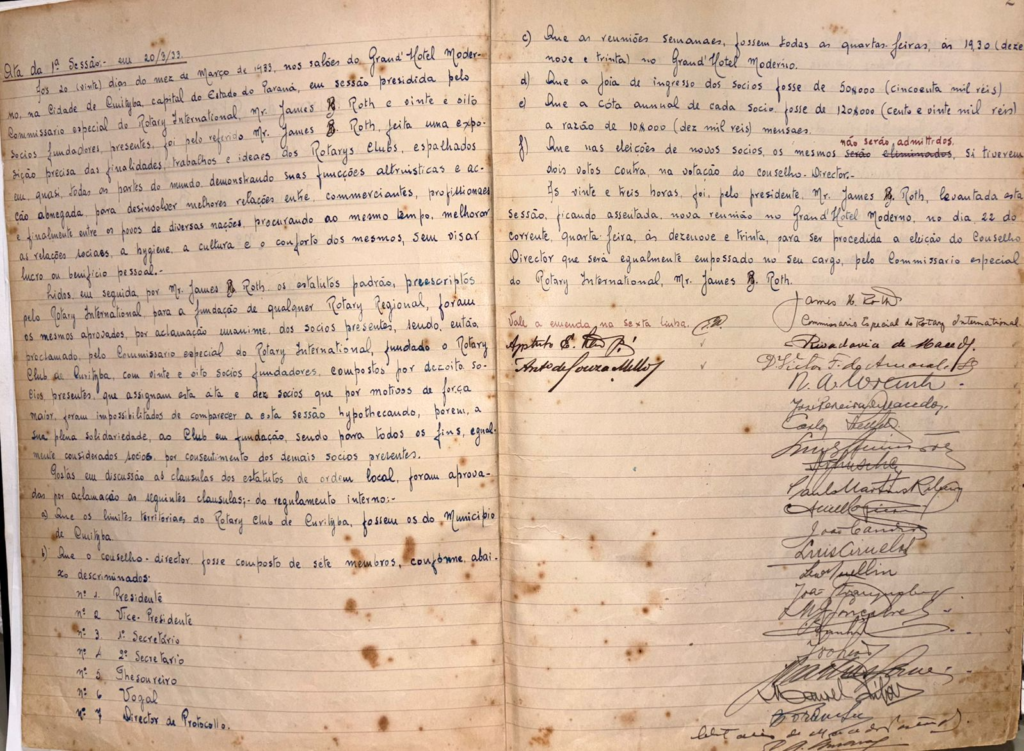 Ata da 1ª Sessão - em 20/3/33.
Aos 20 (vinte) dias do mez de Março de 1933, nos salões do Grand'Hotel Moder-
no, na Cidade de Curityba, capital do Estado do Paraná, em sessão presidida pelo
Commissario especial do Rotary International, Mr. James Roth e vinte e oito
socios fundadores, presentes, foi pelo referido, Mr. James Roth, feita uma expo-
sição precisa das finalidades, trabalhos e ideaes dos Rotarys Clubs, espalhados
em quasi todas as partes do mundo, demonstrando suas funcções altruisticas e ac-
ção abnegada, para desinvolver melhores relações entre, commerciantes, profissionaes
e finalmente entre os povos de diversas nações, procurando ao mesmo tempo, melhorar
as relações sociaes, a hygiene, a cultura e o conforto dos mesmos, sem visar
lucro ou beneficio pessoal.-
Lidos em seguida por Mr. James Roth, os estatutos padrão, preescriptos
pelo Rotary International, para a fundação de qualquer Rotary Regional, foram
os mesmos aprovados, por aclamação unanime dos socios presentes, sendo, então,
proclamado, pelo Commissario especial do Rotary International, fundado o Rotary
Club de Curityba, com vinte e oito socios fundadores, compostos por dezoito so-
cios presentes, que assignam esta ata e dez socios que por motivos de força
maior, foram impossibilitados de comparecer a esta sessão hypothecando, porem, a
sua plena solidariedade, ao Club em fundação, sendo para todos os fins, egual-
mente considerados socios, por consentimento dos demais socios presentes.
Postas em discussão as clausulas dos estatutos de ordem local, foram aprova-
das por aclamação as seguintes clausulas;- do regulamento interno:-
a) Que os limites territoriaes do Rotary Club de Curityba, fossem os do Municipio
de Curityba
b) Que o conselho-director, fosse composto de sete membros, confórme, abai-
xo descriminados:
nº 1. Presidente
nº 2. Vice-Presidente
nº 3. 1º Secretário
nº 4. 2º Secretario
nº 5. Thesoureiro
nº 6 Vogal
nº 7 Director de Protocollo.
c) Que as reuniões semanaes, fossem todas as quartas-feiras, ás 19,30 (deze
nove e trinta) no Grand'Hotel Moderno.
d) Que a joia de ingresso dos socios fosse de 50$000 (cincoenta mil reis)
e) Que a cóta annual de cada socio fosse de 120$000 (cento e vinte mil reis)
a razão de 10$000 (dez mil reis) mensaes.
não serão admittidos
f) Que nas eleições de novos socios, os mesmos serão eliminados, si tiverem
dois votos contra, na votação do conselho-Director.-
Ás vinte e tres horas, foi, pelo presidente, Mr. James Roth, levantada esta
sessão, ficando assentada, nova reunião no Grand'Hotel Moderno, no dia 22 do
corrente, quarta-feira, ás dezenove e trinta, para ser procedida a eleição do Conselho
Director que será egualmente empossado no seu cargo, pelo Commissario especial
do Rotary International, Mr. James Roth.
James H. Roth
Commissario Especial de Rotary International.
Vale a emenda na sexta linha.
Rivadavia de Macedo
Antº de Souza Mello
Dr Victor F. do Amaral
José Pereira de Macedo
Carlos
Paulo Martins
João Candido
João
Gonçalves
Manoel